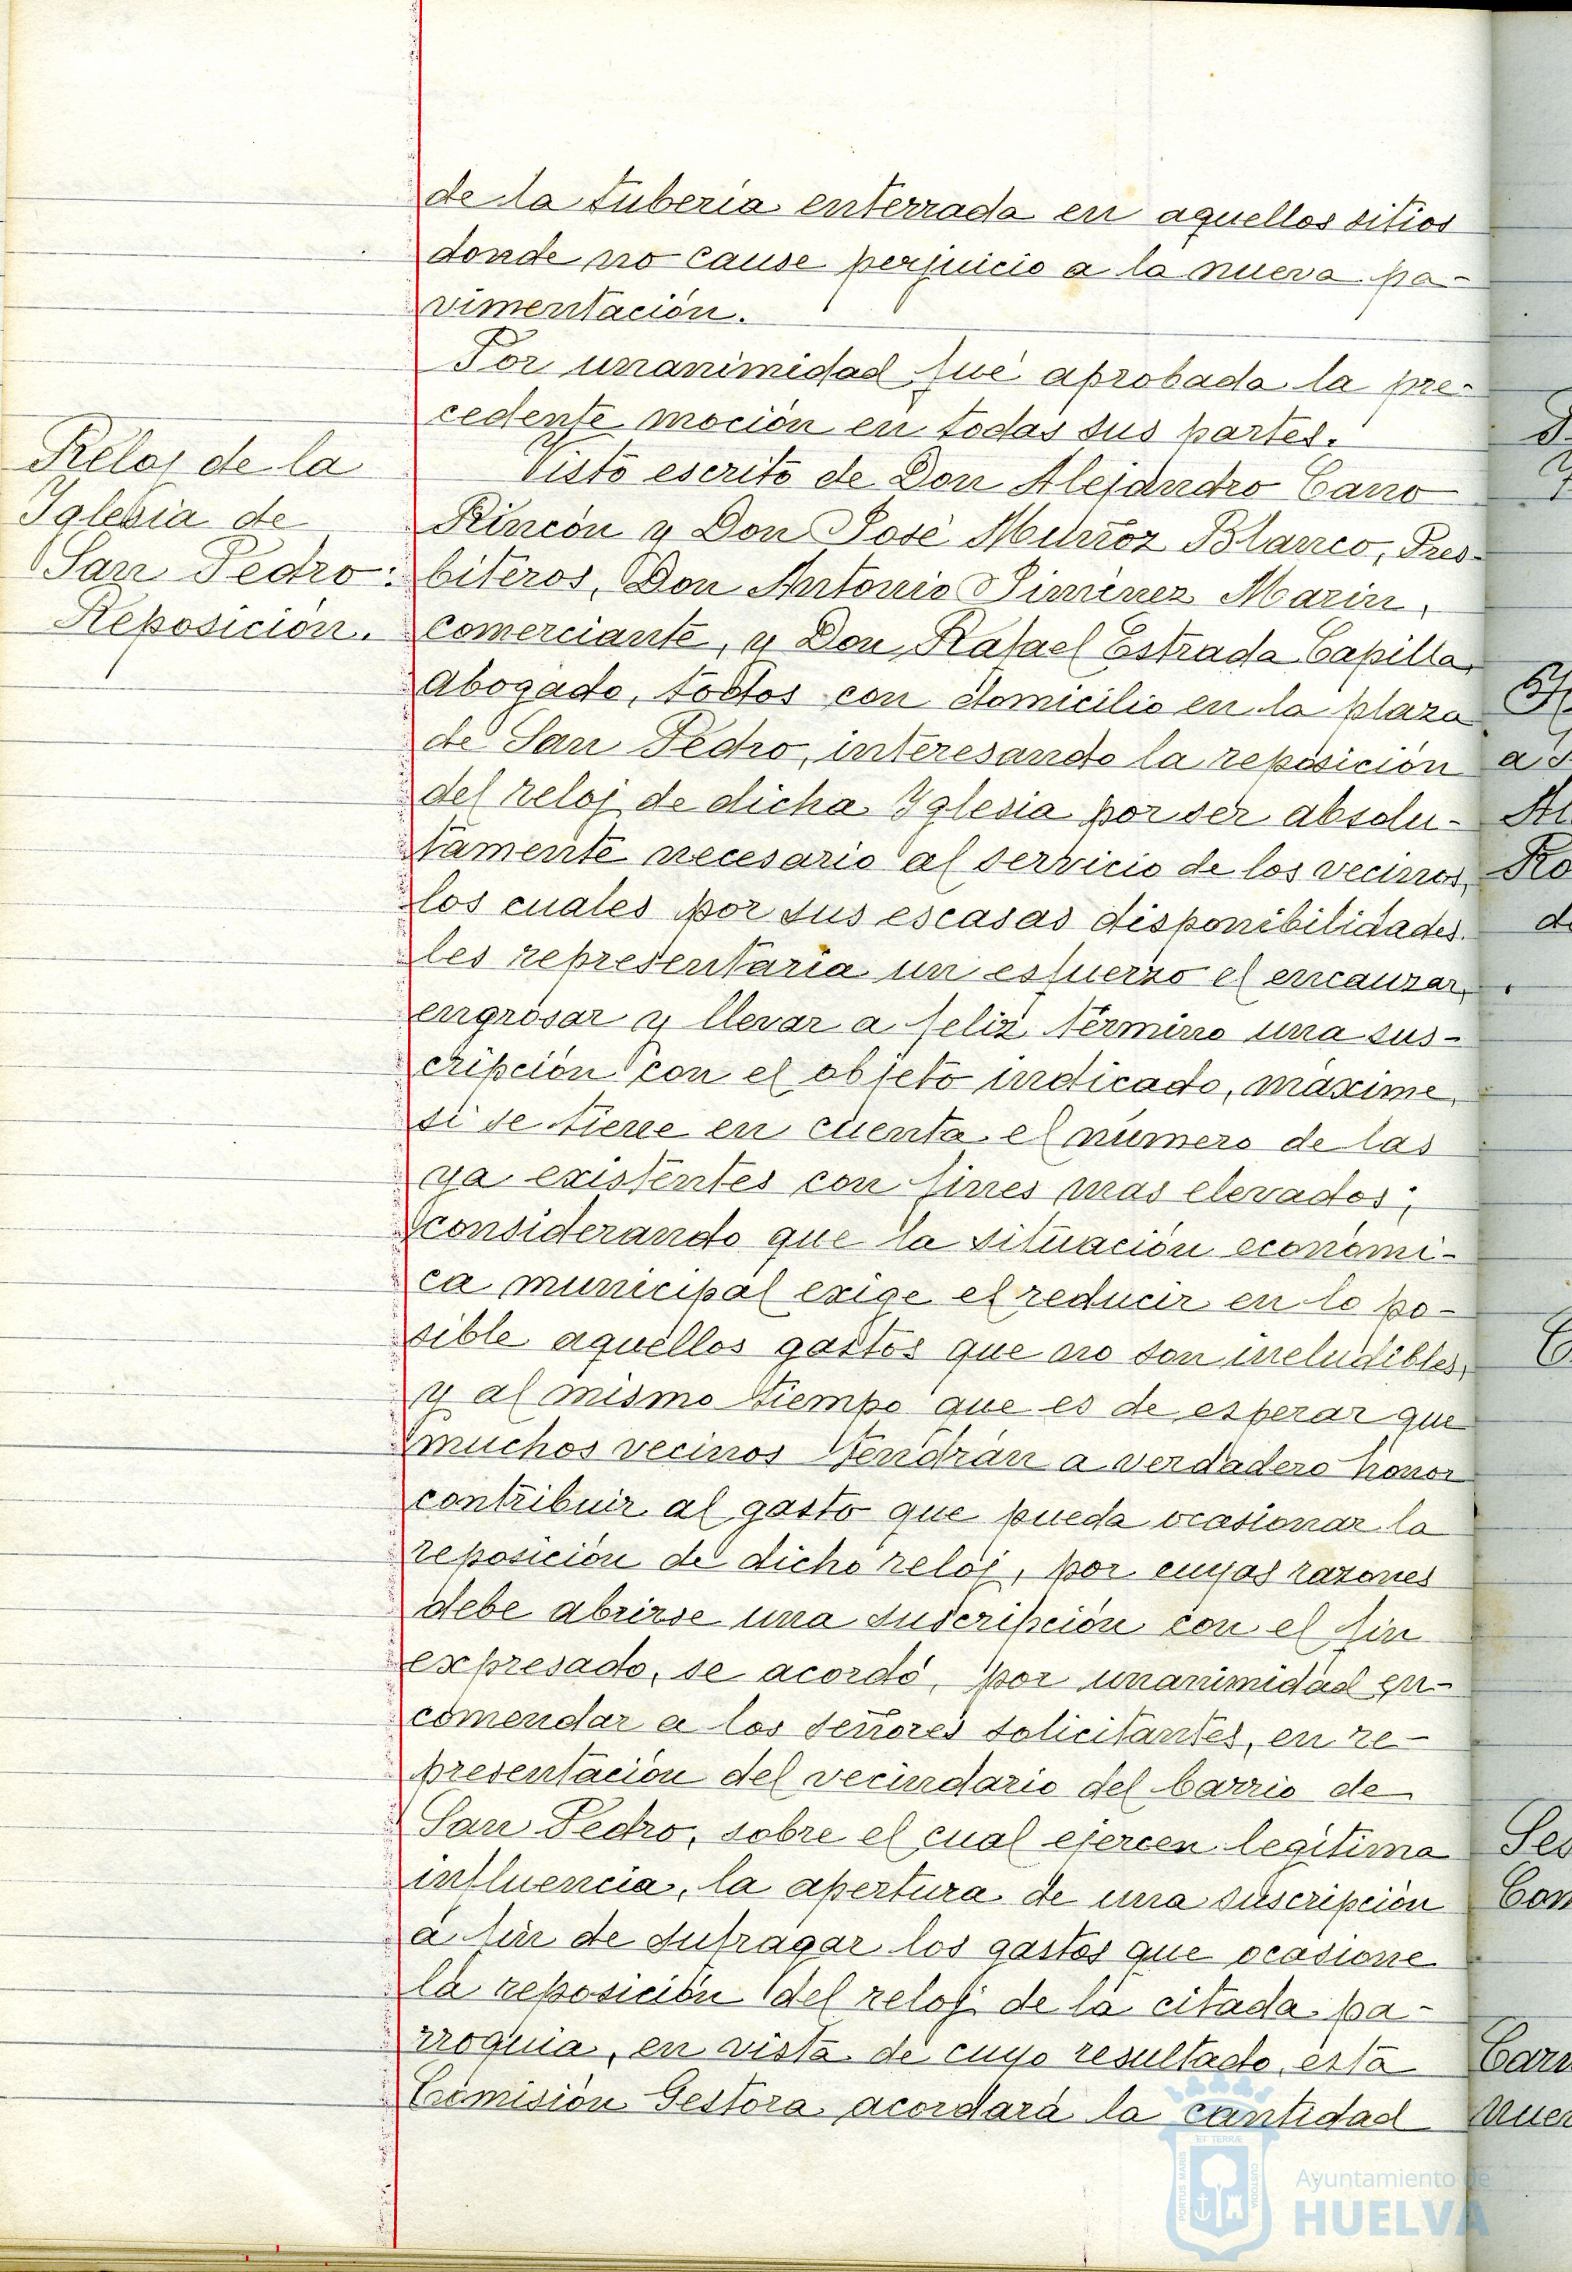 de la tuberia enterrada en aquellos sitios
donde no cause perjuicio a la nueva pa-
vimentación.
Por unanimidad fué aprobada la pre-
cedente moción en todas sus partes.
Reloj de la
Iglesia de
San Pedro:
Reposición.
Visto escrito de Don Alejandro Cano
Rincón y Don José Muñoz Blanco, Pres-
biteros, Don Antonio Jiménez Marin,
comerciante, y Don Rafael Estrada Capilla,
abogado, todos con domicilio en la plaza
de San Pedro, interesando la reposición
del reloj de dicha Iglesia por ser absolu-
tamente necesario al servicio de los vecinos,
los cuales por sus escasas disponibilidades
les representaria un esfuerzo el encauzar,
engrosar y llevar a feliz término una sus-
cripción con el objeto indicado, máxime
si se tiene en cuenta el número de las
ya existentes con fines mas elevados;
considerando que la situación económi-
ca municipal exige el reducir en lo po-
sible aquellos gastos que no son ineludibles,
y al mismo tiempo que es de esperar que
muchos vecinos tendrán a verdadero honor
contribuir al gasto que pueda ocasionar la
reposición de dicho reloj, por cuyas razones
debe abrirse una suscripción con el fin
expresado, se acordó, por unanimidad en-
comendar a los señores solicitantes, en re-
presentación del vecindario del barrio de
San Pedro, sobre el cual ejercen legitima
influencia, la apertura de una suscripción
a fin de sufragar los gastos que ocasione
la reposición del reloj de la citada pa-
rroquia, en vista de cuyo resultado, esta
Comisión Gestora acordará la cantidad
Ayuntamiento de
HUELVA
PORTUS MARIS
ET TERRÆ
CUSTODIA